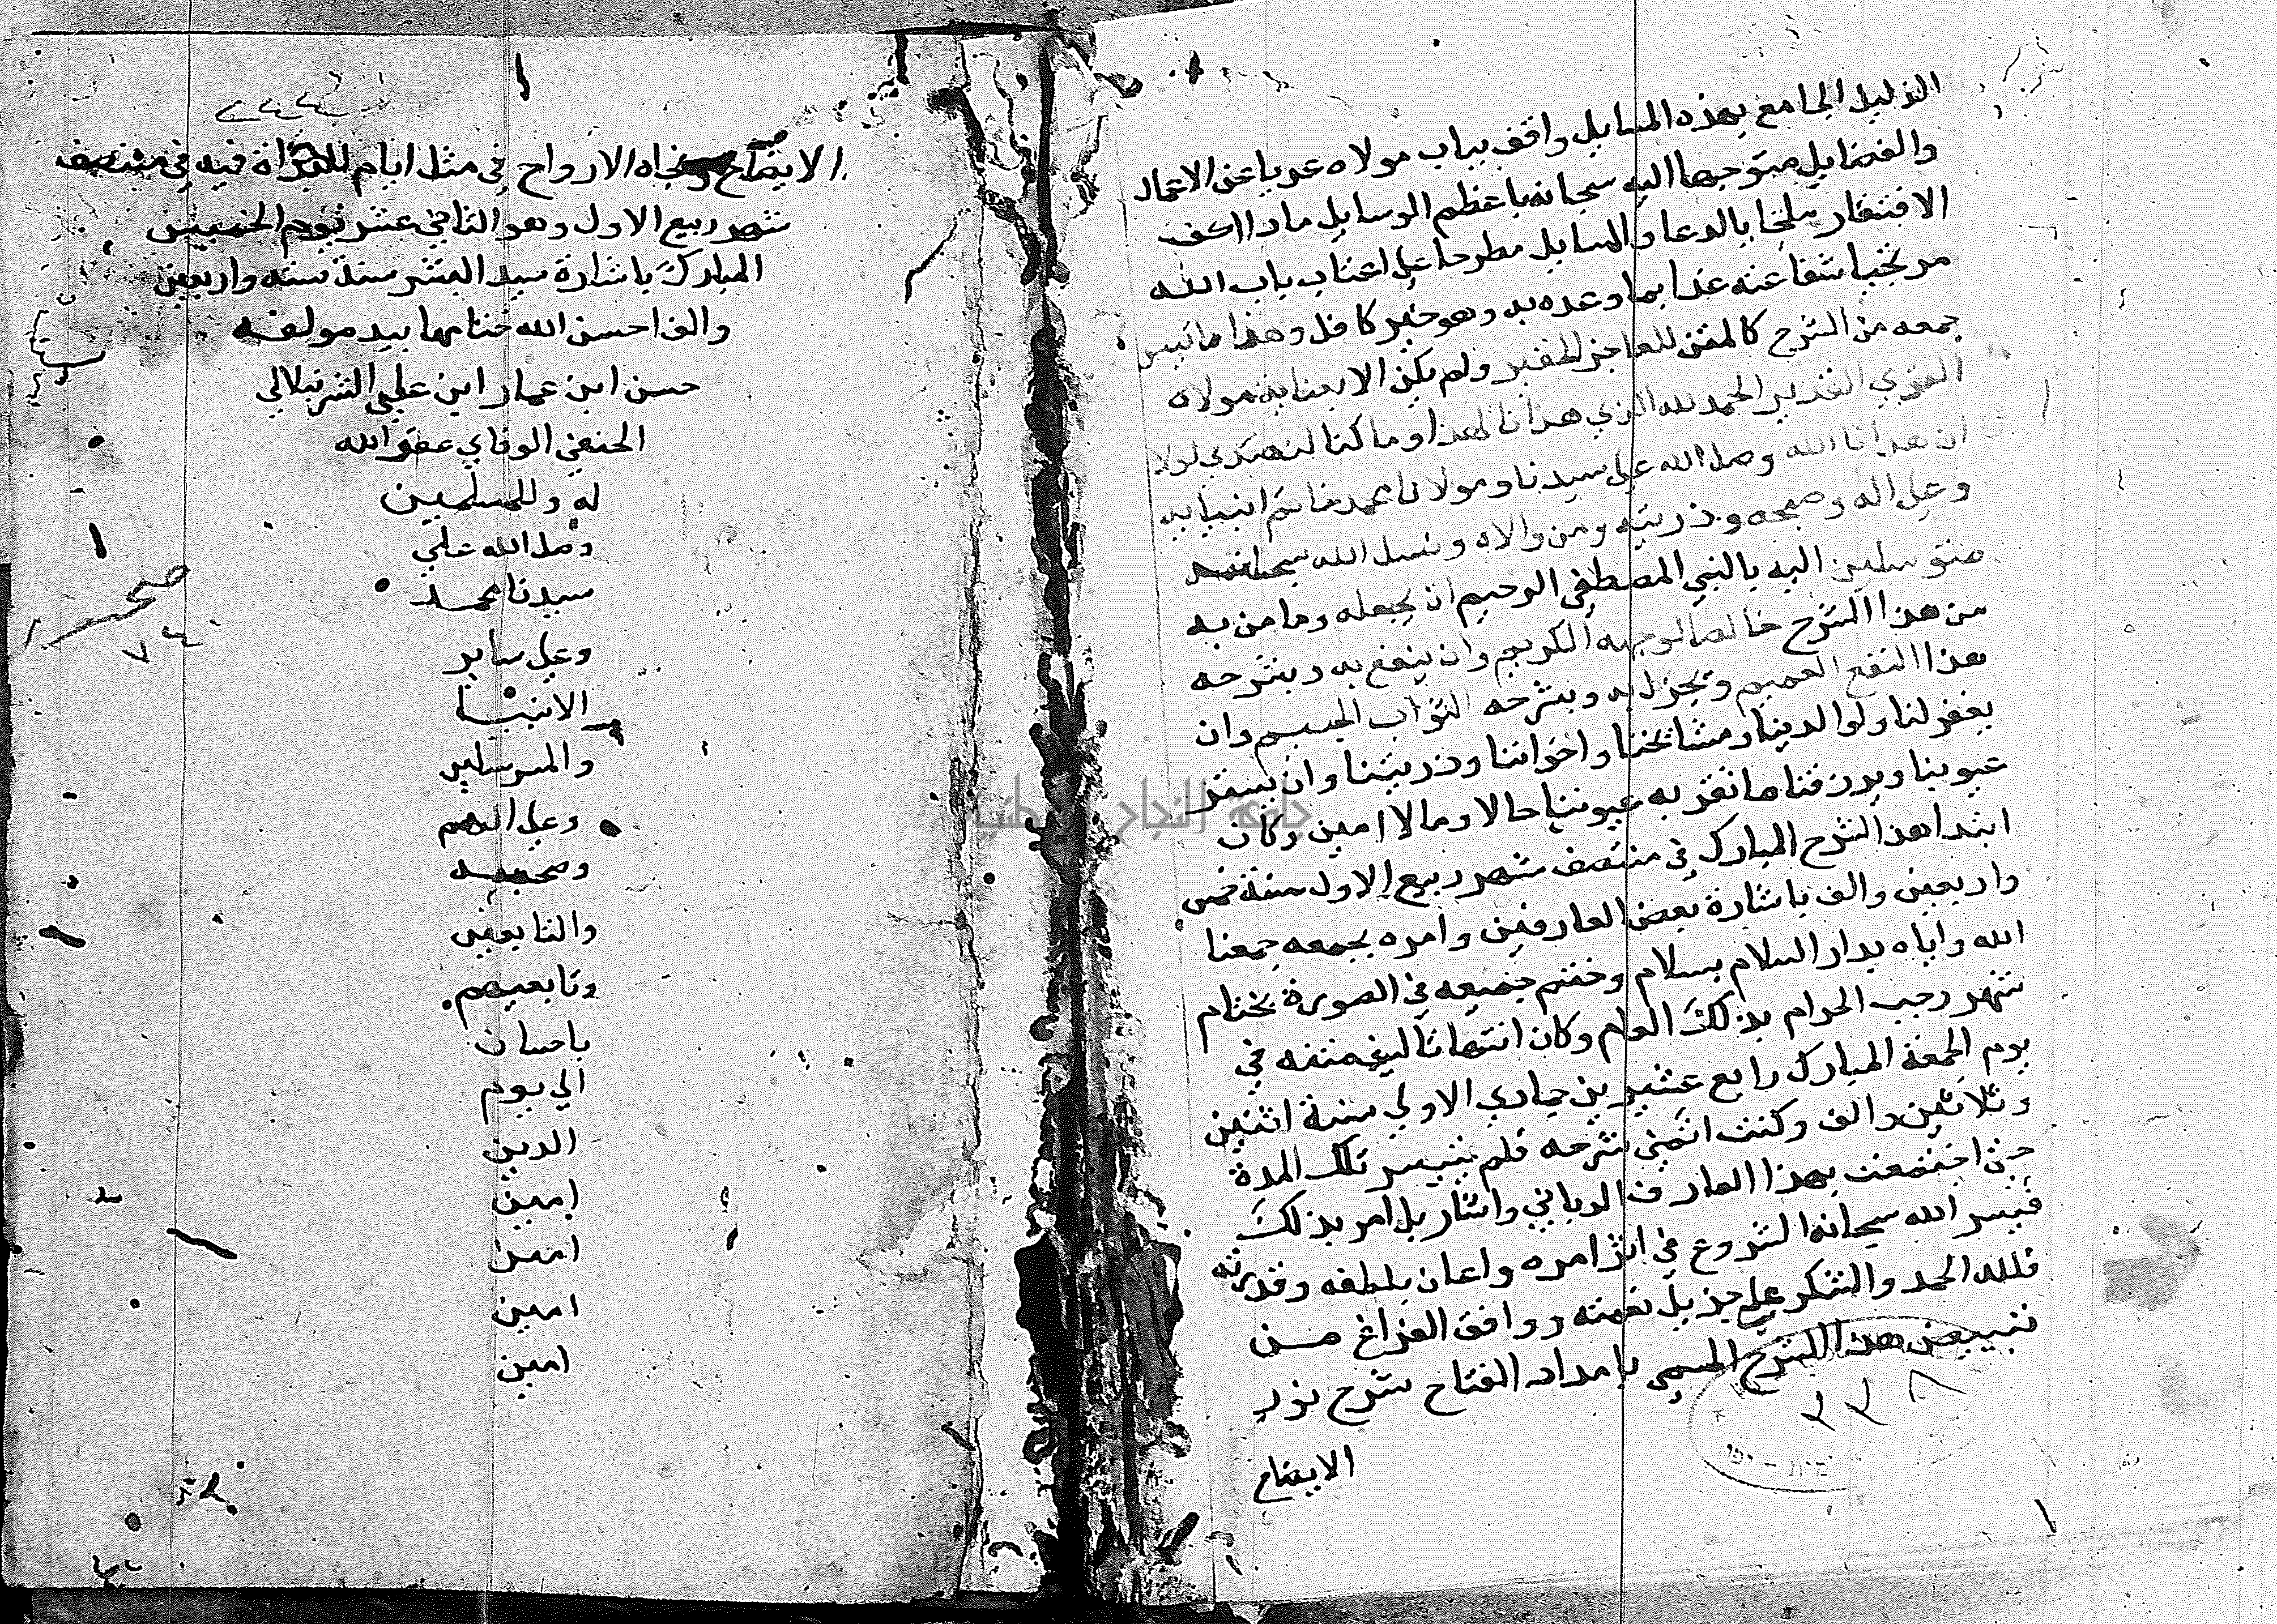 الذليل الجامع بهذه المسايل واقف بباب مولاه عريا عن الاعمال
والفضايل متوجها اليه سبحانه باعظم الوسايل مادا اكف
الافتقار ملخا بالدعا والمسايل مطرحا علي اعتاب باب الله
مرتجيا شفاعته غدا بما وعده به وهو خير كافل وهذا ما تيسر
جمعه من الشرح كالمتن للعاجز الحقير ولم يكن الا بعناية مولاه
القوي القدير الحمد لله الذي هدانا لهذا وما كنا لنهتدي لولا
ان هدانا الله وصلي الله علي سيدنا ومولانا محمد خاتم انبيايه
وعلي اله وصحبه وذريته ومن والاه ونسل الله سبحانه
متوسلين اليه بالنبي المصطفي الرحيم ان يجعله وما من به
من هذا الشرح خالصا لوجهه الكريم وان ينفع به وبشرحه
هذا النفع العميم ويجزل به وبشرحه الثواب الجسيم وان
يغفر لنا ولوالدينا ومشايخنا واخواننا وذريتنا وان يستر
عيوبنا ويرزقنا ما تقر به عيوننا حالا ومالا امين وكان
ابتدا هذا الشرح المبارك في منتصف شهر ربيع الاول سنة خمس
واربعين والف باشارة بعض العارفين وامره بجمعه جمعنا
الله واياه بدار السلام بسلام وختم جميعه في الصورة بختام
شهر رجب الحرام بذلك العام وكان انتها تاليف متنه في
يوم الجمعة المبارك رابع عشرين جمادي الاولي سنة اثنين
وثلاثين والف وكنت اتمني شرحه فلم يتيسر تلك المدة
حين اجتمعت بهذا العارف الرباني واشار بل امر بذلك
فيسر الله سبحانه الشروع في اثر امره واعان بلطفه وقدرته
فلله الحمد والشكر علي جزيل نعمته ووافق الفراغ من
تبييض هذا الشرح المسمي بامداد الفتاح شرح نور
الايضاح
٢٢٨
الايضاح ونجاه الارواح في مثل ايام للقراة فيه في منتصف
شهر ربيع الاول وهو الثاني عشر يوم الخميس
المبارك باشارة سيد البشر سنة سته واربعين
والف احسن الله ختامها بيد مولفه
حسن ابن عمار ابن علي الشرنبلالي
الحنفي الوفاي عفو الله
له وللمسلمين
وصلي الله علي
سيدنا محمد
وعلي ساير
الانبيا
والمرسلين
وعلي الهم
وصحبه
والتابعين
وتابعيهم
باحسان
الي يوم
الدين
امين
امين
امين
امين
صح
جامعة النجاح الوطنية